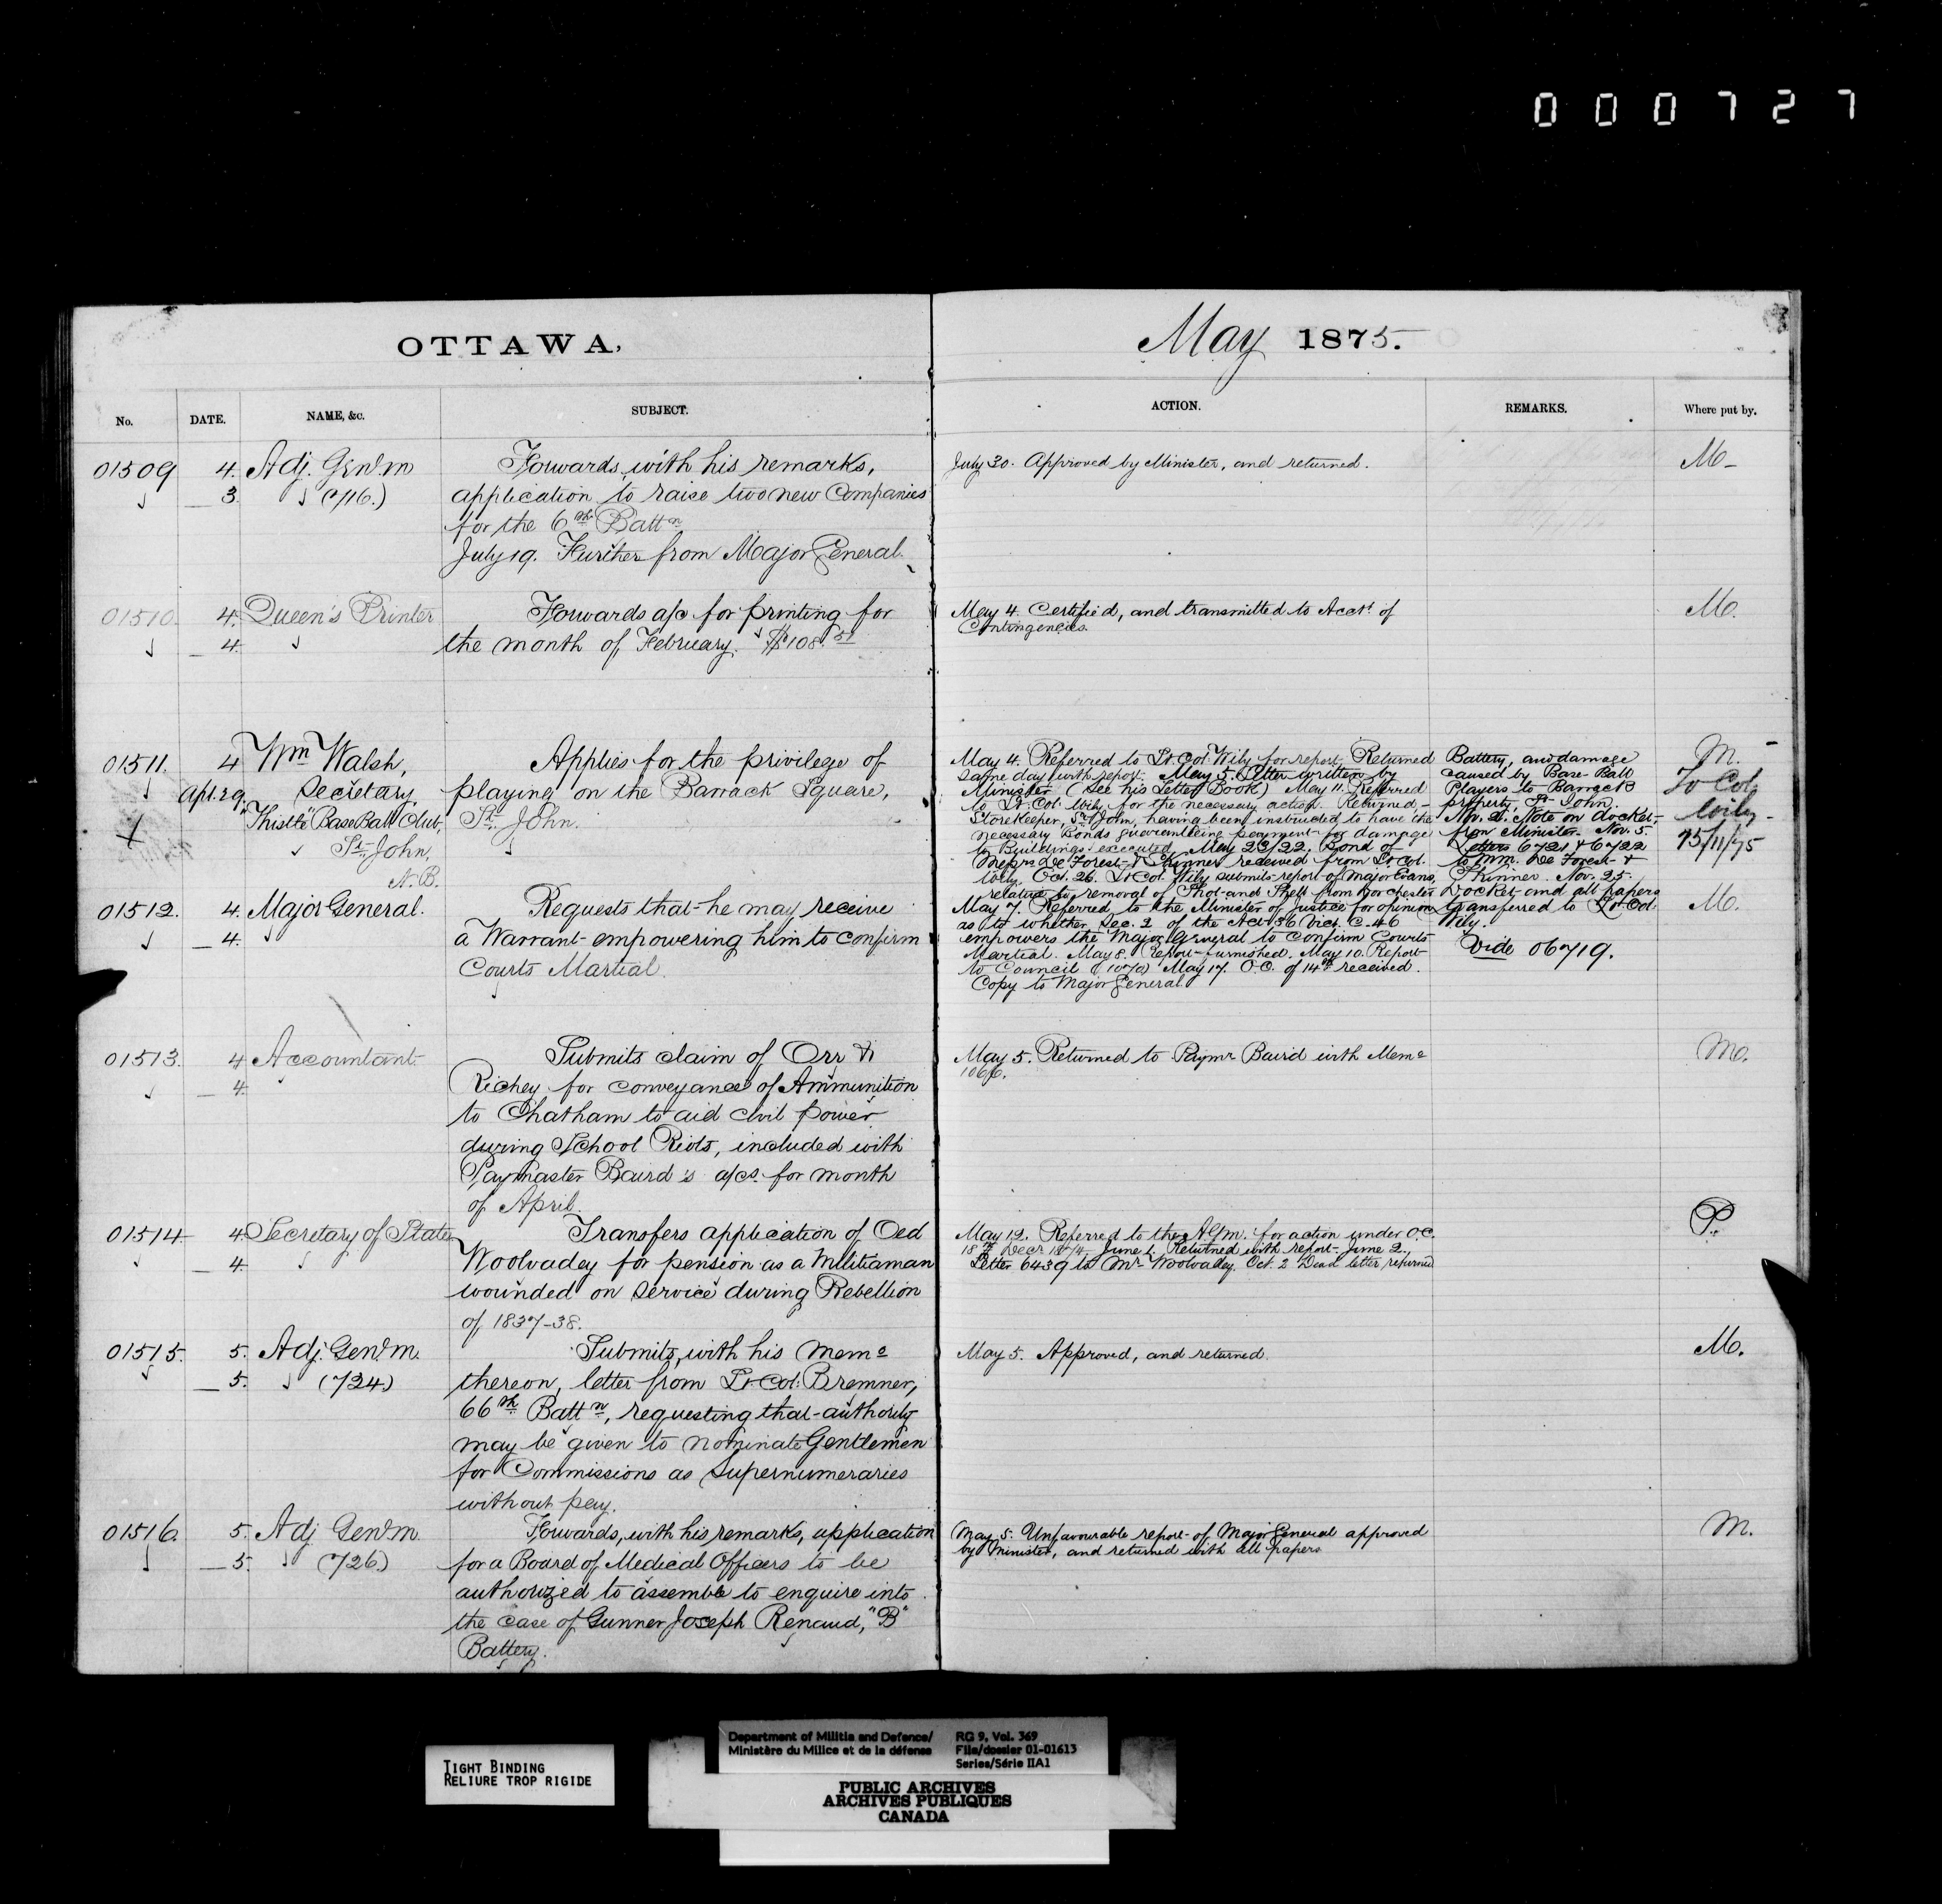 000727
OTTAWA,
May 1875.
No. DATE. NAME, &c. SUBJECT. ACTION. REMARKS. Where put by.
01509 4. Adj. Genl. m
3. (716.)
Forwards, with his remarks,
application to raise two new Companies
for the 6th Battn
July 19. Further from Major General.
July 30. Approved by Minister, and returned.
M
01510. 4. Queen's Printer
4.
Forwards a/c for printing for
the month of February. $108.51
May 4. Certified, and transmitted to Acct. of
Contingencies.
M.
01511. 4 Wm Walsh,
Apl. 29. Secretary,
"Thistle" Base Ball Club,
St. John,
N.B.
Applies for the privilege of
playing on the Barrack Square,
St. John.
May 4. Referred to Lt. Col. Wily for report. Returned
same day with report. May 5. Letter written by
Minister (See his Letter Book) May 11. Referred
to Lt. Col. Wily for the necessary action. Returned,
Storekeeper, St. John, having been instructed to have the
necessary Bonds guaranteeing payment for damage
to Buildings executed. May 23/22. Bond of
Messrs De Forest & Skinner received from Lt. Col.
Wily. Oct. 26. Lt. Col. Wily submits report of Major Evans,
relative to removal of Shot and Shell from Dorchester
Battery, and damage
caused by Base-Ball
Players to Barrack
property, St. John.
Note on docket
from Minister. Nov. 5.
Letters 6721 & 6722
to MM. De Forest &
Skinner. Nov. 25.
Docket and all papers
transferred to Lt. Col.
Wily.
Vide 06719.
M.
To Col.
Wily
25/11/75
01512. 4. Major General.
4.
Requests that he may receive
a Warrant empowering him to confirm
Courts Martial.
May 7. Referred to the Minister of Justice for opinion
as to whether Sec. 2 of the Act 36 Vict. C. 46
empowers the Major General to confirm Courts
Martial. May 8. Report furnished. May 10. Report
to Council May 17. O.C. of 14th received.
Copy to Major General.
M.
01513. 4 Accountant
4.
Submits claim of Orr &
Richey for conveyance of Ammunition
to Chatham to aid civil power
during School Riots, included with
Paymaster Baird's a/cs. for month
of April.
May 5. Returned to Paymr Baird with Memo
1066.
M.
01514 4. Secretary of State
4.
Transfers application of Oed
Woolvadey for pension as a Militiaman
wounded on service during Rebellion
of 1837-38.
May 12. Referred to the A.G.m. for action under O.C.
18th Decr 1874. June 1. Returned with report. June 2.
Letter 6439 to Mr Woolvadey. Oct. 2 Dead letter returned
P.
01515. 5. Adj. Genl. m.
5. (724)
Submits, with his memo
thereon, letter from Lt. Col. Bremner,
66th Battn, requesting that authority
may be given to nominate Gentlemen
for Commissions as Supernumeraries
without pay.
May 5. Approved, and returned.
M.
01516. 5. Adj. Genl. m.
5. (726.)
Forwards, with his remarks, application
for a Board of Medical Officers to be
authorized to assemble to enquire into
the case of Gunner Joseph Renaud, "B"
Battery.
May 5. Unfavourable report of Major General approved
by Minister, and returned with all papers
M.
TIGHT BINDING
RELIURE TROP RIGIDE
Department of Militia and Defence/
Ministère du Milice et de la défense
RG 9, Vol. 369
File/dossier 01-01613
Series/Série IIA1
PUBLIC ARCHIVES
ARCHIVES PUBLIQUES
CANADA